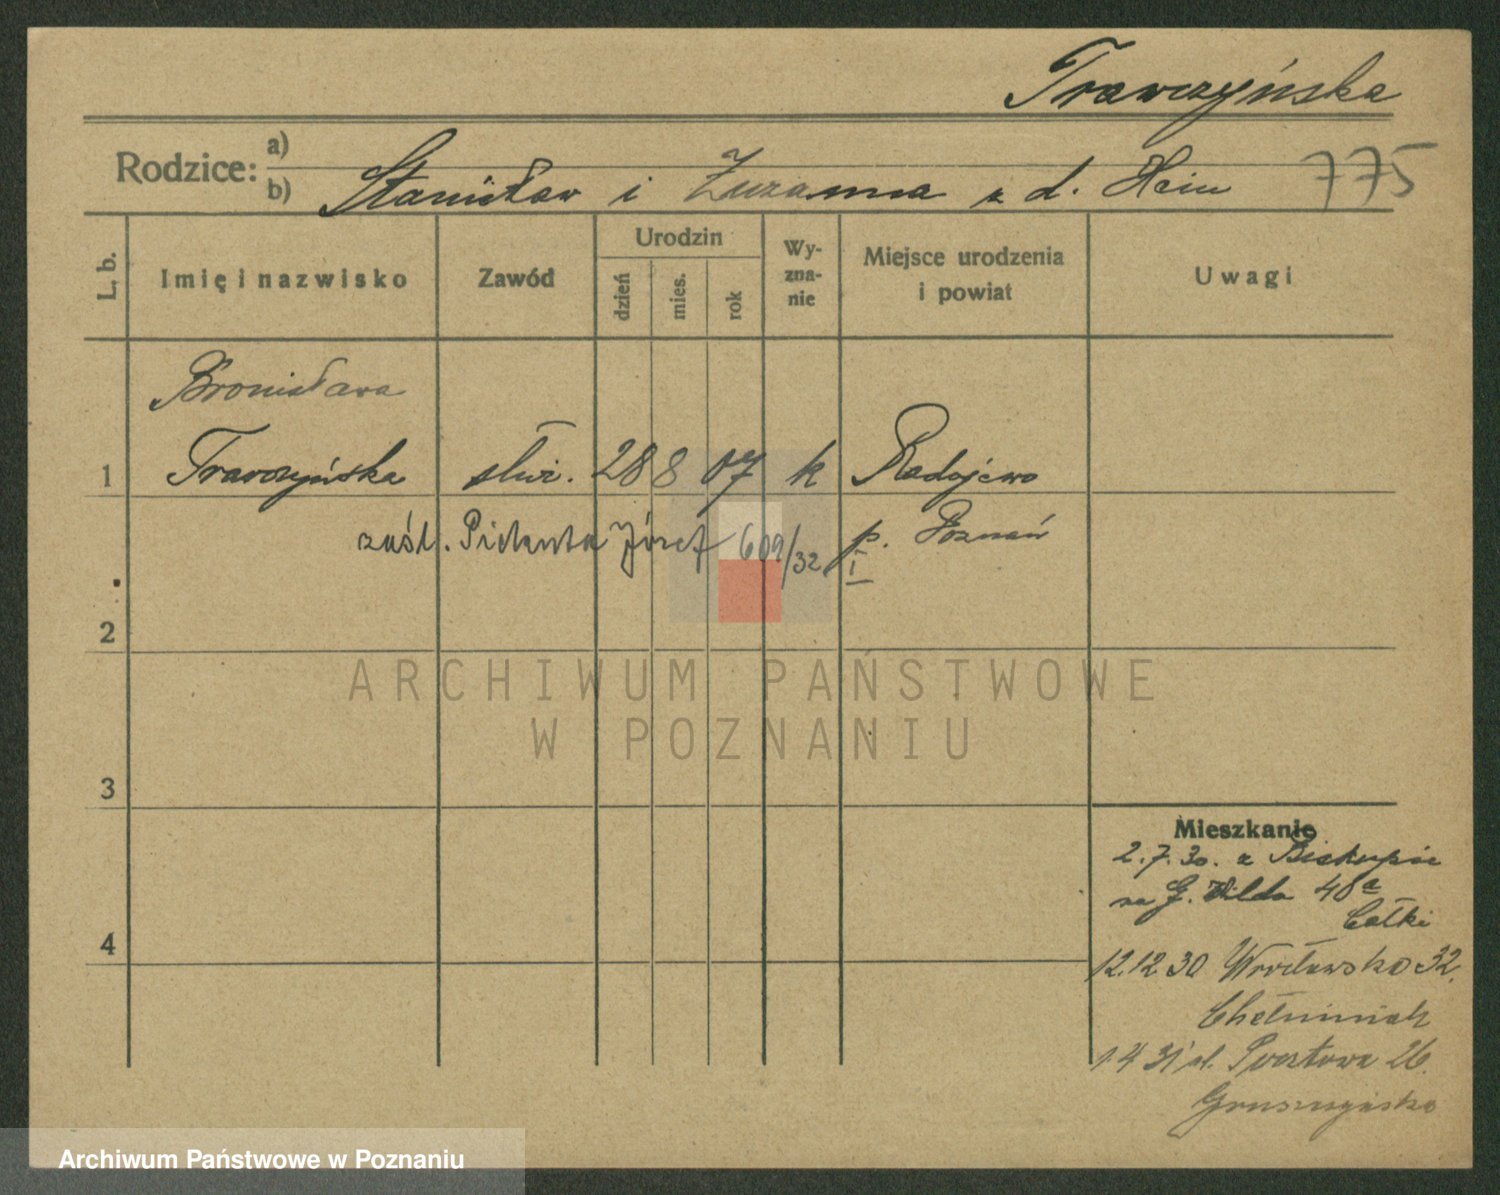 Trawczyńska
Rodzice: a)
b) Stanisław i Zuzanna z d. Hein 775
L. b. Imię i nazwisko Zawód Urodzin dzień mies. rok Wy-zna-nie Miejsce urodzenia i powiat Uwagi
Bronisława
1 Trawczyńska służ. 28 8 07 k Radojewo
zaśl. Józef 609/32 p. Poznań
I
2
ARCHIWUM PAŃSTWOWE
W POZNANIU
3
Mieszkanie
2.7.30. z Biskupic
na G. Wilda 48a
Całki
4
12.12.30 Wrocławska 32.
Chełminiak
1.4.31 ul. Pocztowa 26.
Gruszczyńska
Archiwum Państwowe w Poznaniu